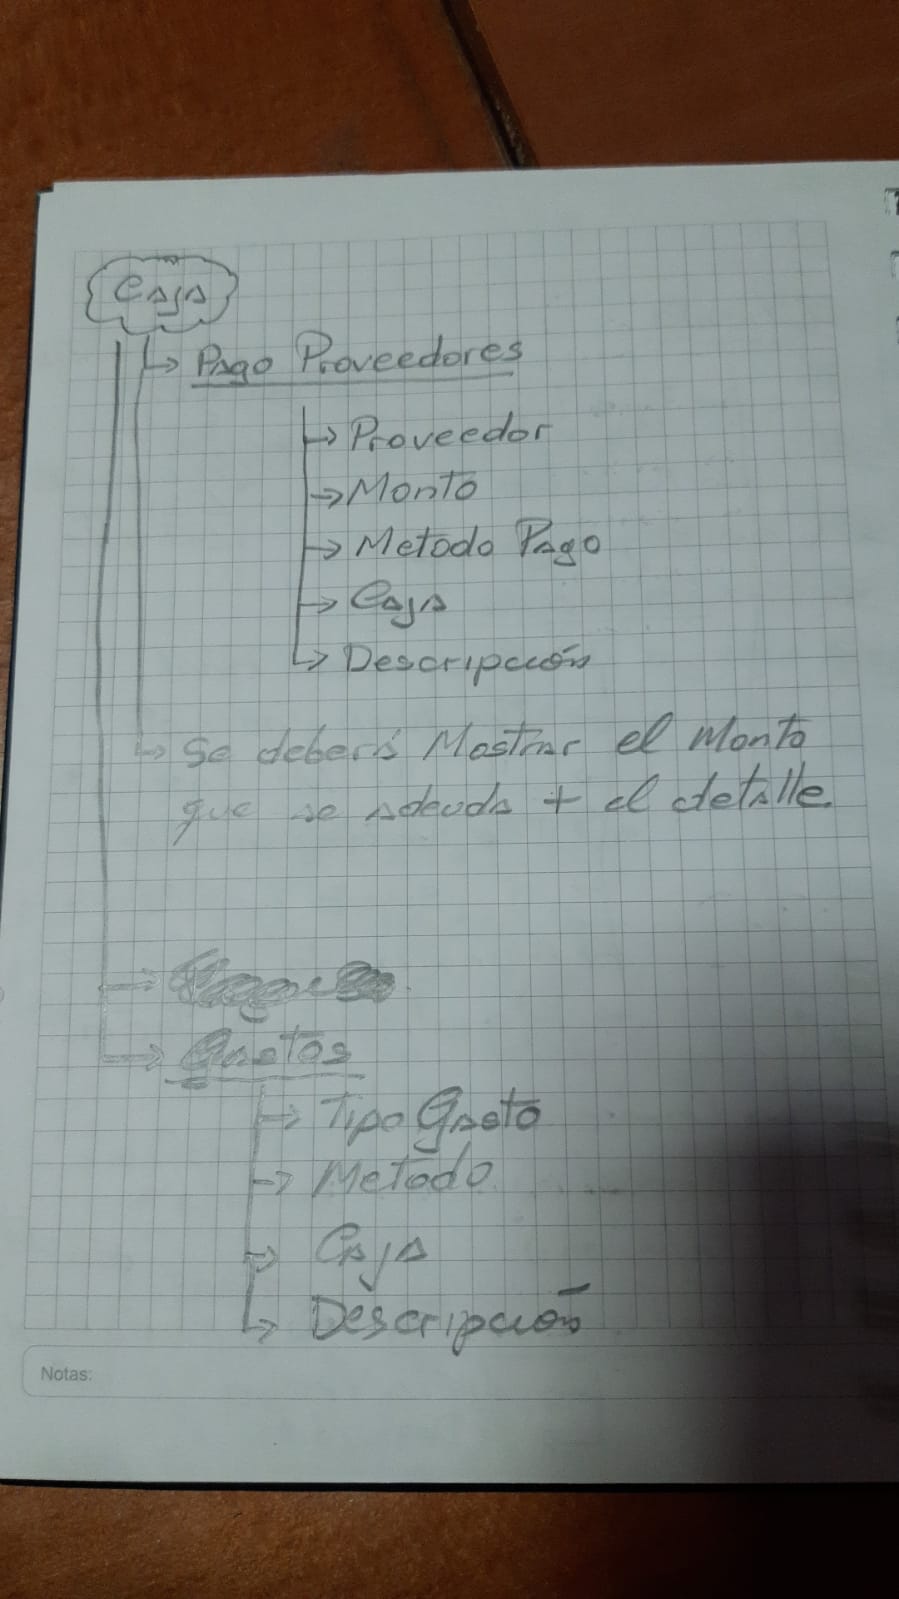 Caja
Pago Proveedores
Proveedor
Monto
Metodo Pago
Caja
Descripción
Se deberá Mostrar el Monto
que se adeuda + el detalle.
Gastos
Tipo Gasto
Metodo
Caja
Descripción
Notas: